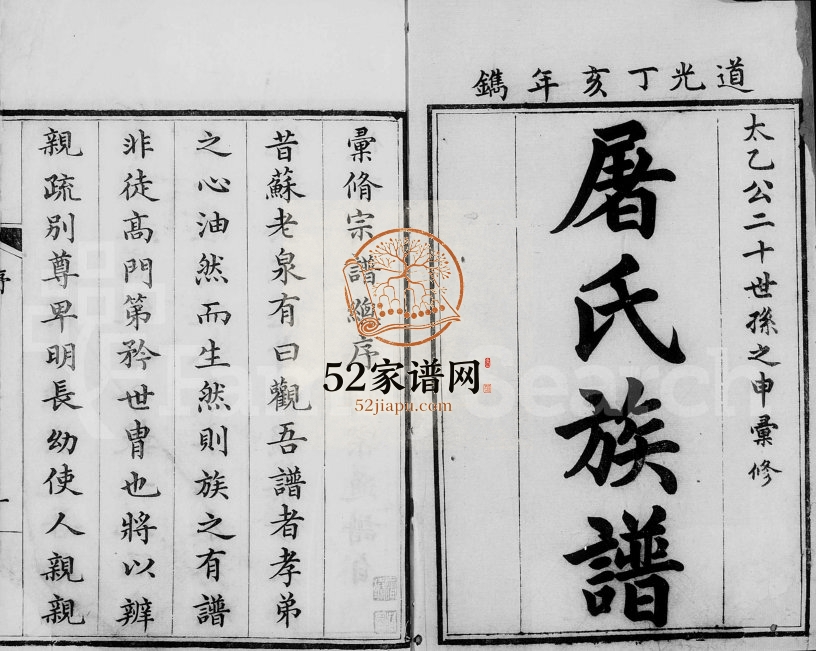 道光丁亥年鐫
太乙公二十世孫之申彙修
屠氏族譜
彙脩宗譜總序
昔蘇老泉有曰觀吾譜者孝弟
之心油然而生然則族之有譜
非徒高門第矜世胄也將以辨
親疏別尊卑明長幼使人親親
序
一
52家谱网
52jiapu.com
FamilySearch